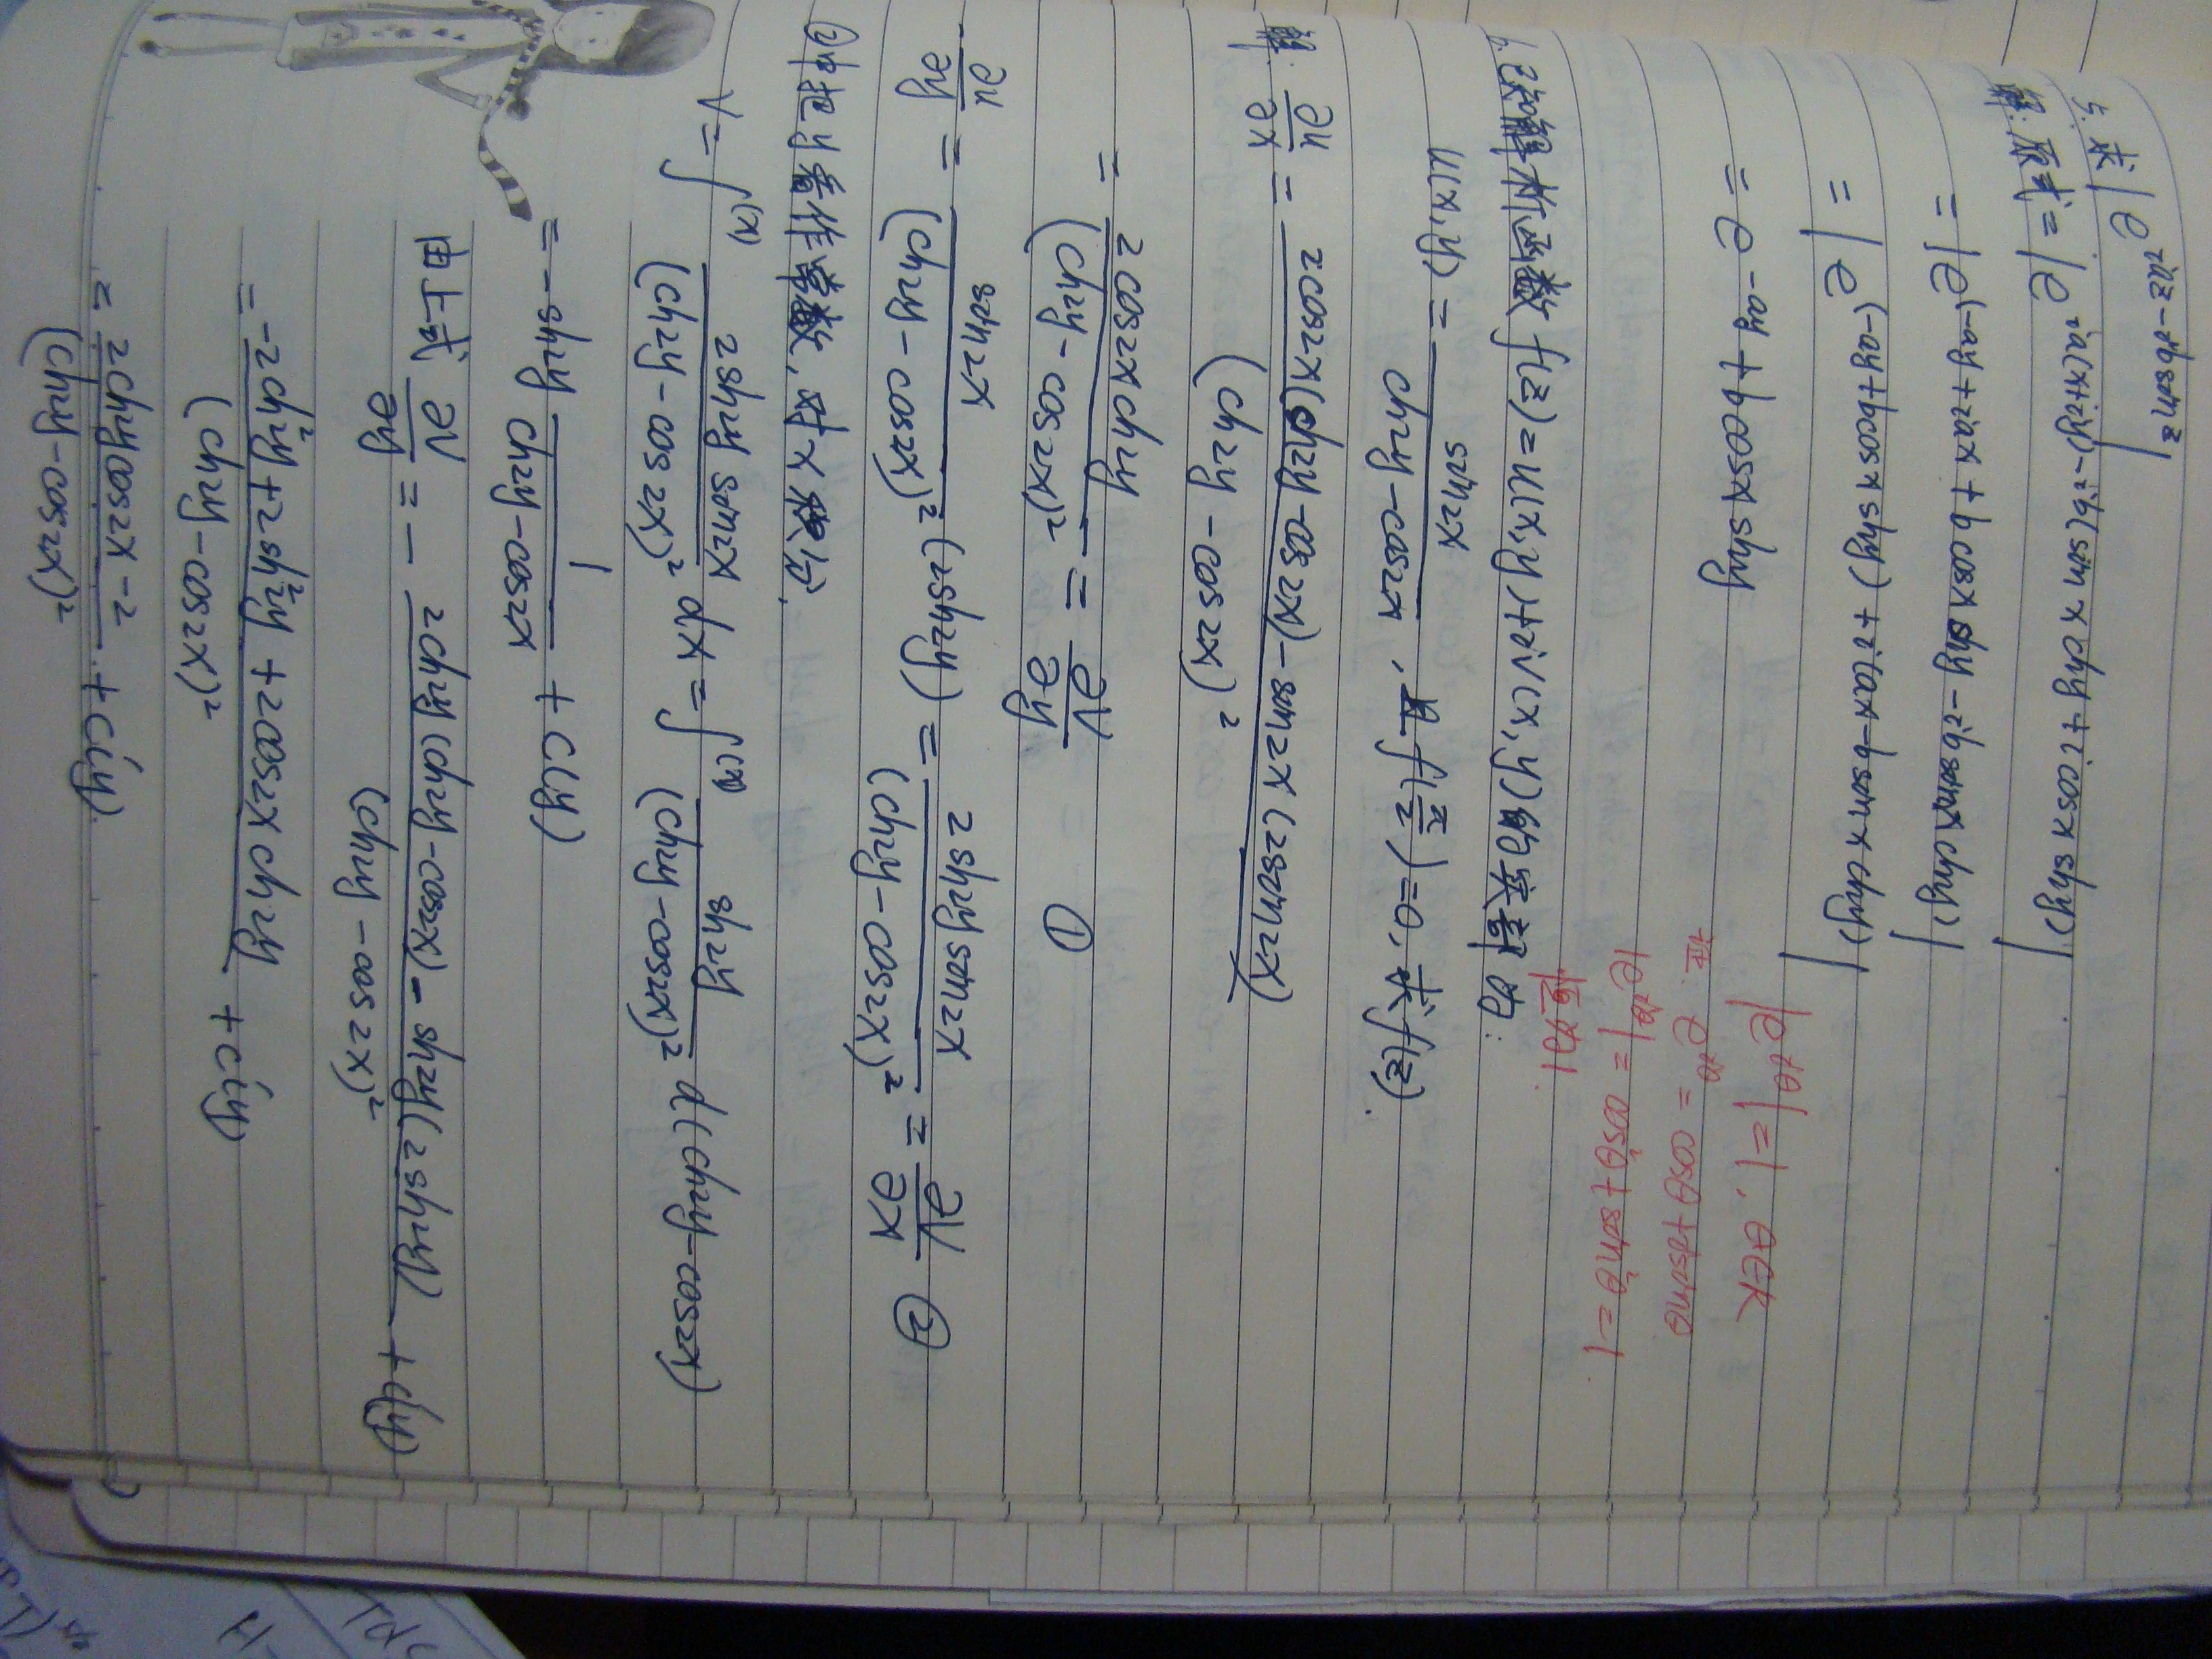 5. 求 |e^{iaz-ib sin z}|
解: 原式 = |e^{ia(x+iy)-ib(sin x chy + i cos x shy)}|
= |e^{(-ay+iax+b cos x shy - ib sin x chy)}|
= |e^{(-ay+b cos x shy)+i(ax-b sin x chy)}|
= e^{-ay+b cos x shy}
|e^{iθ}|=1. θ∈R
证: e^{iθ} = cosθ+isinθ
|e^{iθ}| = cos²θ+sin²θ=1
6. 已知解析函数 f(z)=u(x,y)+iv(x,y)的实部为:
u(x,y) = \frac{sin2x}{ch2y-cos2x}, 且 f(\frac{π}{2})=0, 求f(z).
解: \frac{∂u}{∂x} = \frac{2cos2x(ch2y-cos2x)-sin2x(2sin2x)}{(ch2y-cos2x)²}
= \frac{2cos2xch2y}{(ch2y-cos2x)²} = \frac{∂v}{∂y} ①
\frac{∂u}{∂y} = \frac{sin2x}{(ch2y-cos2x)²}(2sh2y) = \frac{2sh2ysin2x}{(ch2y-cos2x)²} = \frac{∂v}{∂x} ②
②中把y看作常数, 对x积分,
v = ∫^{(x)} \frac{2sh2y sin2x}{(ch2y-cos2x)²} dx = ∫^{(x)} \frac{sh2y}{(ch2y-cos2x)²} d(ch2y-cos2x)
= -sh2y \frac{1}{ch2y-cos2x} + c(y)
由上式 \frac{∂v}{∂y} = - \frac{2ch2y(ch2y-cos2x)-sh2y(2sh2y)}{(ch2y-cos2x)²} + c'(y)
= \frac{-2ch²2y+2sh²2y+2cos2xch2y}{(ch2y-cos2x)²} + c'(y)
= \frac{2ch2ycos2x-2}{(ch2y-cos2x)²} + c'(y).